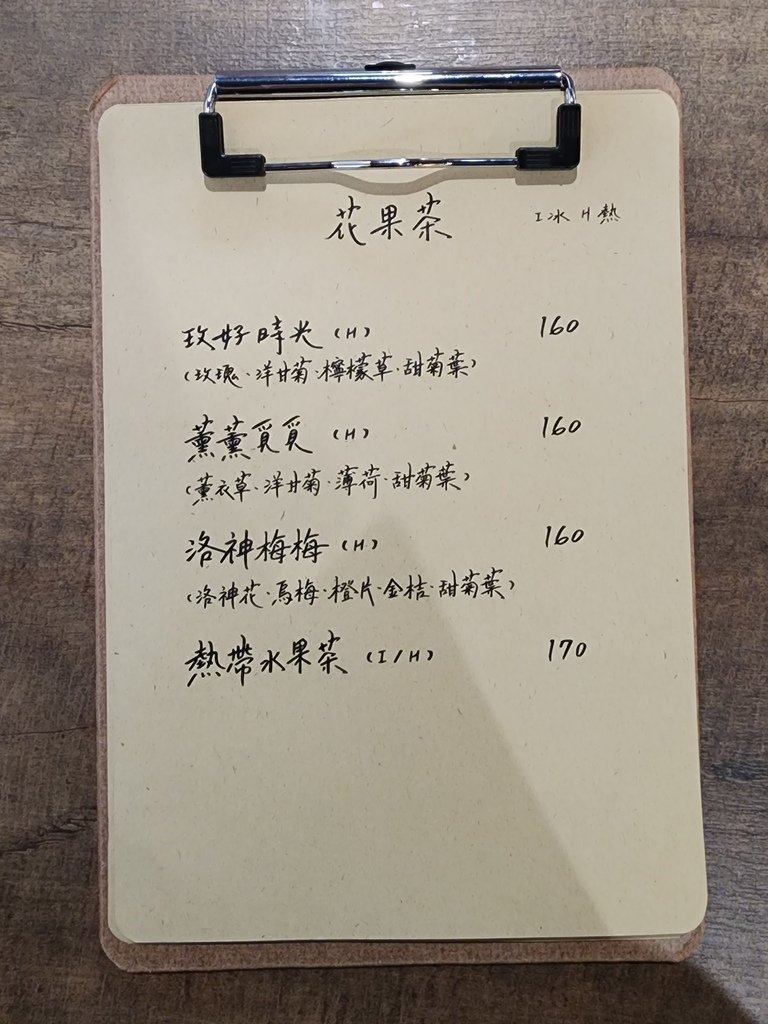 花果茶 I冰 H熱
玫好時光 (H) 160
(玫瑰·洋甘菊·檸檬草·甜菊葉)
薰薰覓覓 (H) 160
(薰衣草·洋甘菊·薄荷·甜菊葉)
洛神梅梅 (H) 160
(洛神花·烏梅·橙片·金桔·甜菊葉)
熱帶水果茶 (I/H) 170